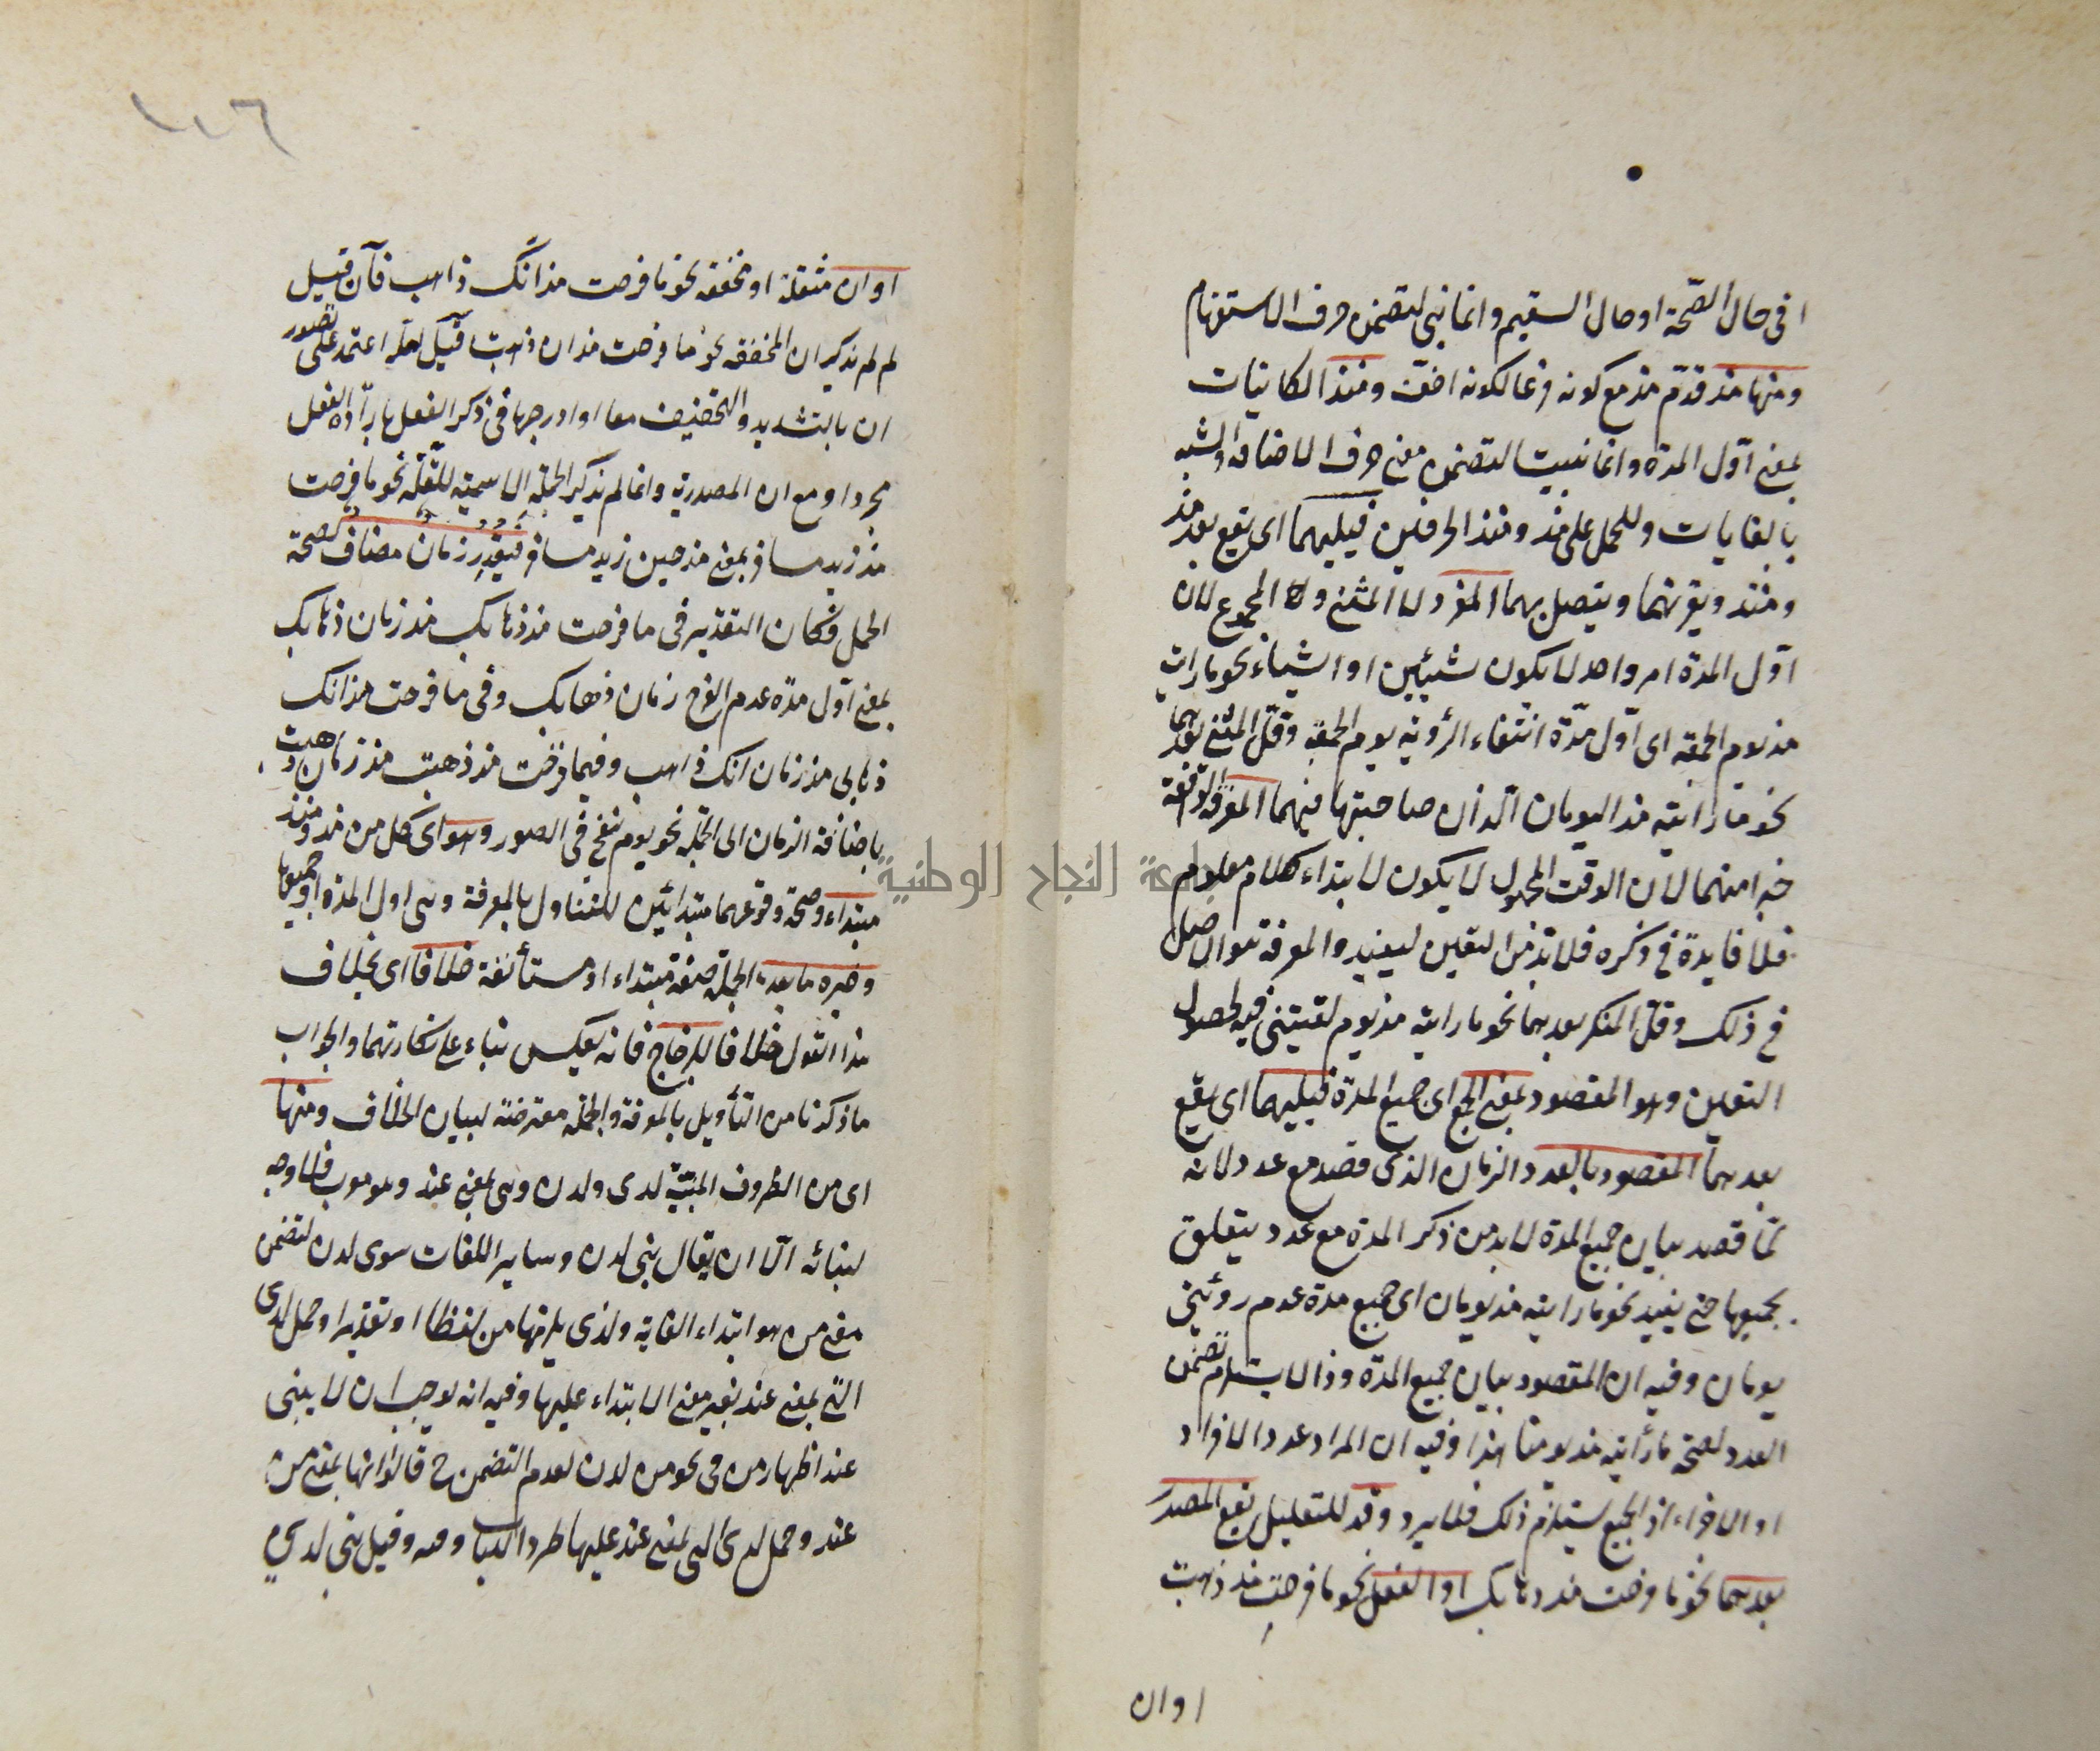 ا فى حال الصّحة او حال السقيم وانما بنى لتضمن حرف الاستفهام
ومنها مذ قدّم مذ مع كونه فرعا لكونه اخفّ ومنذ الكاينات
بمعنى اوّل المدة وانما بنيت لتضمن معنى حرف الاضافة والشبه
بالغايات وللحمل على مذ ومنذ الحرفين فيليهما اى يقع بعد مذ
ومنذ ويقرنهما ويتصل بهما المفرد لا المثنى ولا المجموع لان
اوّل المدة امر واحد لا يكون شيئين او اشياء نحو ما رايت
مذ يوم الجمعة اى اوّل مدّة انتفاء الرؤية يوم الجمعة وقلّ المثنى بعدهما
نحو ما رايته مذ اليومان اللذان صاحبتها فيهما المعرفة لوقعة
خبرا منهما لان الوقت المجهول لا يكون لابتداء كلام معلوم
فلا فايدة فى ذكره فلا بدّ من التعين ليفيد والمعرفة هو الاصل
فى ذلك وقلّ المنكر بعدهما نحو ما رايته مذ يوم لقيتنى فيه لحصول
التعين وهو المقصود بمعنى الجمع اى جميع المدة فيليهما اى يقع
بعدهما المقصود بالعدد الزمان الذى قصد مع عدد لانه
لمّا قصد بيان جميع المدة لا بد من ذكر المدة مع عدد يتعلق
بجميعها حتى يفيد نحو ما رايته مذ يومان اى جميع مدة عدم رؤيتى
يومان وفيه ان المقصود بيان جميع المدة وذا لا يستلزم تضمن
العدد لصحة ما رأيته مذ يومنا هذا وفيه ان المراد عدد الافراد
او الاجزاء اذ الجميع يستلزم ذلك فلا يرد وقد للتقليل يقع المصدر
بعدهما نحو ما فرحت مذ ذهابك او الفعل نحو ما فرحت مذ ذهبت
او ان
١١٦
او ان مثقلة او مخففة نحو ما فرحت مذ انّك ذاهب فان قيل
لم لم يذكر ان المخففة نحو ما فرحت مذ ان ذهبت قيل لعله اعتمد على تصور
ان بالتشديد والتخفيف معا او ادرجها فى ذكر الفعل بارادة الفعل
مجردا او مع ان المصدرية وانما لم يذكر الجملة الاسمية للقلّة نحو ما فرحت
مذ زيد مسافر بمعنى مذ حين زيد مسافر فيقدّر زمان مضاف لصحة
الحمل فكان التقدير فى ما فرحت مذ ذهابك مذ زمان ذهابك
بمعنى اوّل مدّة عدم الفرح زمان ذهابك وفى ما فرحت مذ انك
ذاهب مذ زمان انك ذاهب وفيما فرحت مذ ذهبت مذ زمان ذهبت
باضافة الزمان الى الجملة نحو يوم ينفخ فى الصور وهو اى كل من مذ ومنذ
مبتداء وصحة وقوعهما مبتدائين للتناول بالمعرفة وهى اول المدة او جميعها
وخبره ما بعده الجملة صفة مبتداء او مستأنفة خلافا اى بخلاف
هذا القول خلافا للزجاج فانه يعكس بناء على نكارتهما والجواب
ما ذكرنا من التأويل بالمعرفة والجملة معترضة لبيان الخلاف ومنها
اى من الظروف المبنيّة لدى ولدن وهى بمعنى عند وهو معرب فلا وجه
لبنائه الّا ان يقال بنى لدن وساير اللغات سوى لدن لتضمن
معنى من هو ابتداء الغاية ولذى يلزمها من لفظا او تقديرا وحمل لدى
التى بمعنى عند بغير معنى الابتداء عليها وفيه انه يوجب ان لا يبنى
عند اظهار من فى نحو من لدن لعدم التضمن ح قالوا انها بمعنى من
عند وحمل لدى التى بمعنى عند عليها طردا للباب وقيل بنى لدى
جامعة النجاح الوطنية